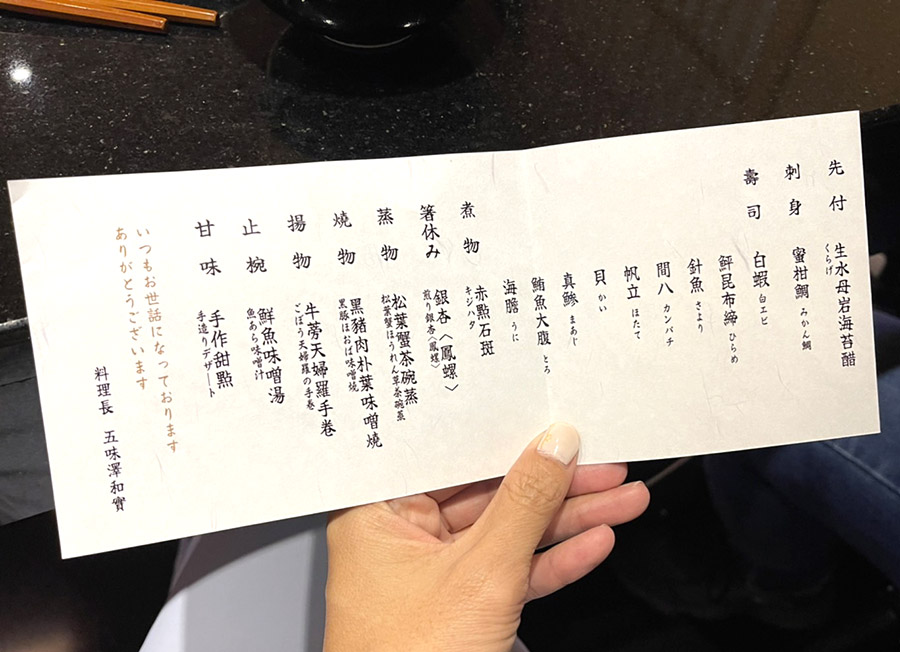 先付
生水母岩海苔醋
くらげ
刺身
蜜柑鯛 みかん鯛
壽司
白蝦 白エビ
鮃昆布締 ひらめ
針魚 さより
間八 カンパチ
帆立 ほたて
貝 かい
真鯵 まあじ
鮪魚大腹 とろ
海膽 うに
煮物
赤點石斑
キジハタ
箸休み
銀杏〈鳳螺〉
煎り銀杏〈鳳螺〉
蒸物
松葉蟹茶碗蒸
松葉蟹ほうれん草茶碗蒸
燒物
黑豬肉朴葉味噌燒
黒豚ほおば味噌焼
揚物
牛蒡天婦羅手卷
ごぼう天婦羅の手巻
止椀
鮮魚味噌湯
魚あら味噌汁
甘味
手作甜點
手造りデザート
いつもお世話になっております
ありがとうございます
料理長 五味澤和實